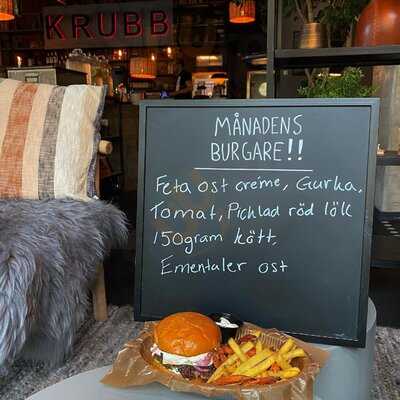 KRUBB
MÅNADENS
BURGARE!!
Feta ost creme, Gurka,
Tomat, Pichlad röd lök
150gram kött,
Ementaler ost